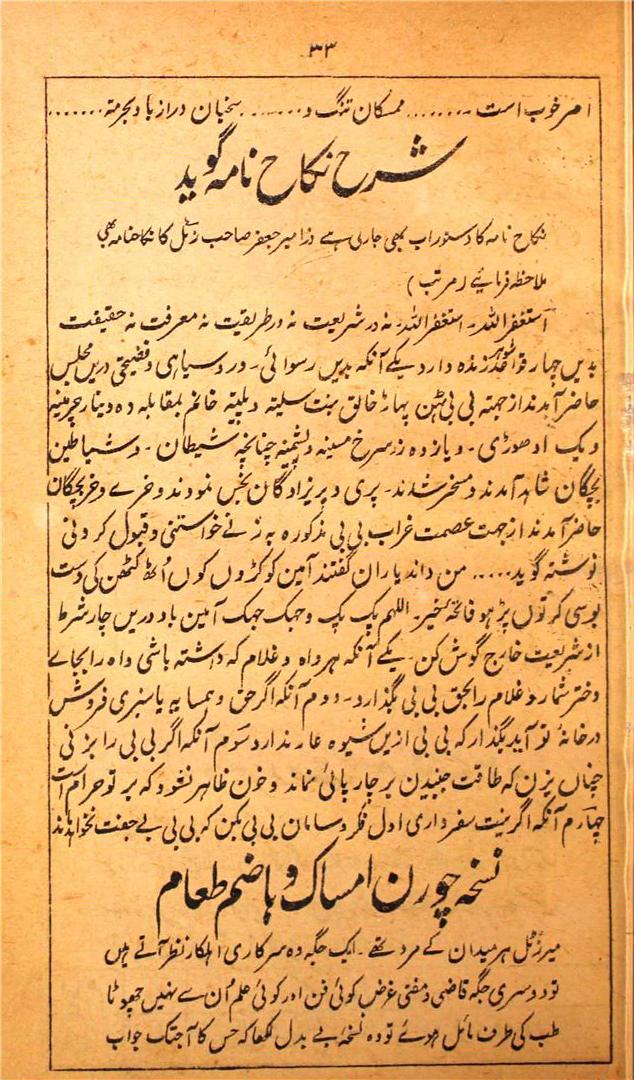 ۳۳
امر خوب است ........ ممسکان تنگ و ........ سخیان دراز باد بحرمتہ ........
شرح نکاح نامہ گوید
نکاح نامہ کا دستور اب بھی جاری ہے ذرا میر جعفر صاحب زٹل کا نکاحنامہ بھی
ملاحظہ فرمائیے (مرتب)
استغفراللہ۔ استغفراللہ۔ نہ در شریعت نہ در طریقت نہ معرفت نہ حقیقت
بدیں چہار شوہر زندہ دارد یکے آنکہ بدیں رسوائی۔ و رو سیاہی و فضیحتی دریں مجلس
حاضر آمدند از جہتہ بی بی پہاڑ خالق بنت سلیتہ خانم بمقابلہ دہ دینار چرمینہ
و یک ادھوڑی۔ و یازدہ زر سرخ مسینہ و پشمینہ چنانچہ شیطان۔ و شیاطین
بچگان شاہد آمدند و مسخر شدند۔ پری و پریزادگان نمودند و خرے و خر بچگان
حاضر آمدند از جہت عصمت خراب بی بی مذکورہ بہ زنے خواستنی و قبول کردنی
نوشتہ گوید..... من داند یاران گفتند آمین کوکڑوں کوں اُٹھ کٹھن کی دست
بوسی کر توں پڑہو فاتحہ بخیر۔ اللہم پک پک و جہک جہک آمین باد دریں چار شرط
از شریعت خارج گوش کن۔ یکے آنکہ ہر داہ و غلام کہ داشتہ باشی داہ را بجائے
دختر شمار و غلام را بحق بی بی بگذارد۔ دوم آنکہ اگر حق و ہمسایہ یا سبزی فروش
در خانۂ تو آید بگذار کہ بی بی ازیں شیوہ عار ندارد سوم آنکہ اگر بی بی را بزنی
چناں بزن کہ طاقت جنبیدن بر چارپائی نماند و خون ظاہر نشود کہ بر تو حرام است
چہارم آنکہ اگر نیت سفر داری اول فکر و سامان بی بی بکن کہ بی بی بے جفت نخواہد ماند
نسخہ چورن امساک و ہاضم طعام
میر زٹل ہر میدان کے مرد تھے۔ ایک جگہ وہ سرکاری اہلکار نظر آتے ہیں
تو دوسری جگہ قاضی و مفتی غرض کوئی فن اور کوئی علم اُن سے نہیں چھوٹا
طب کی طرف مائل ہوئے تو وہ نسخۂ بے بدل لکھا کہ جس کا آجتک جواب